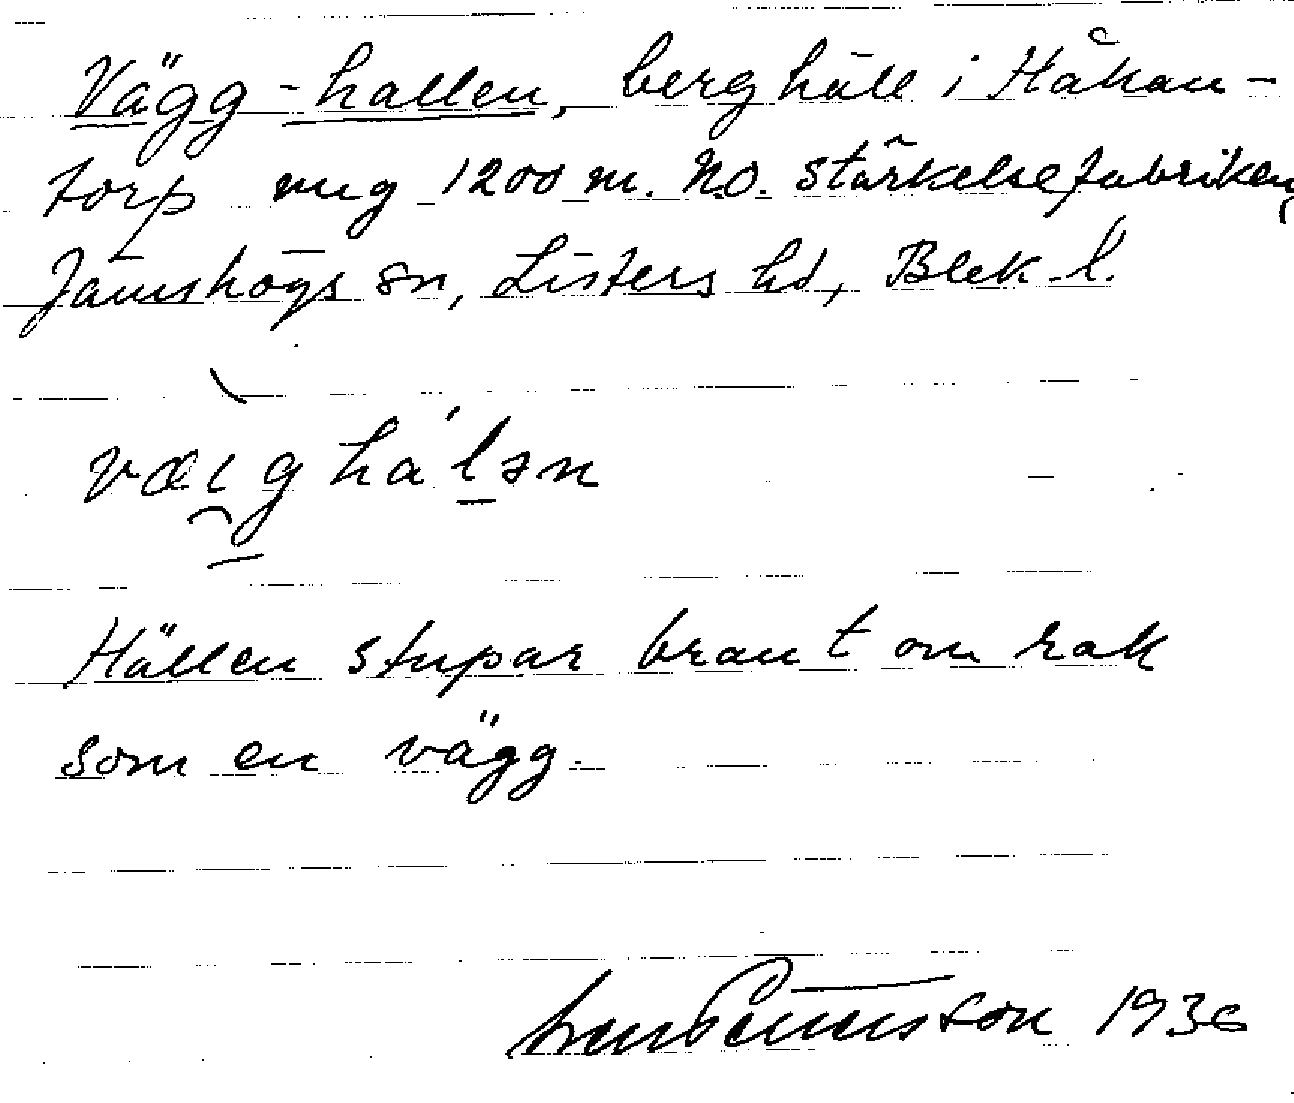 Vägg-hallen, berghäll i Håkan-
torp 1200 m. N.O. stärkelsefabriken,
Jämshögs sn, Listers hd, Blek. l.
væi̯g hál̠ən
Hällen stupar brant om rak
som en vägg.
1936